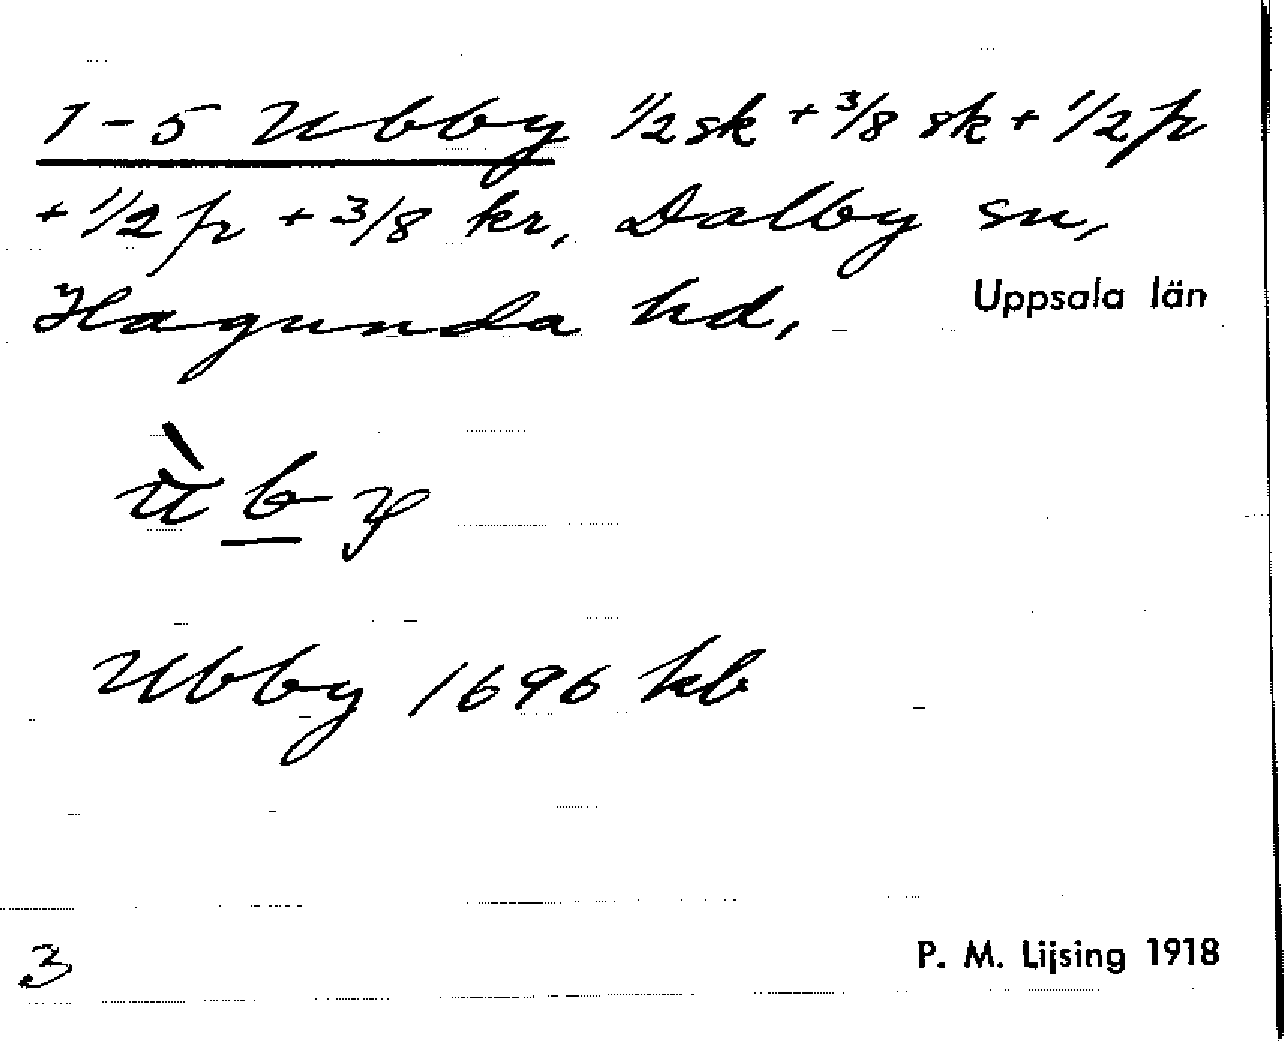 1-5 Ubby 1/2 sk + 3/8 sk + 1/2 fr
+ 1/2 fr + 3/8 kr, Dalby sn,
Hagunda hd, Uppsala län
ùby
Ubby 1696 kb
3 P. M. Lijsing 1918